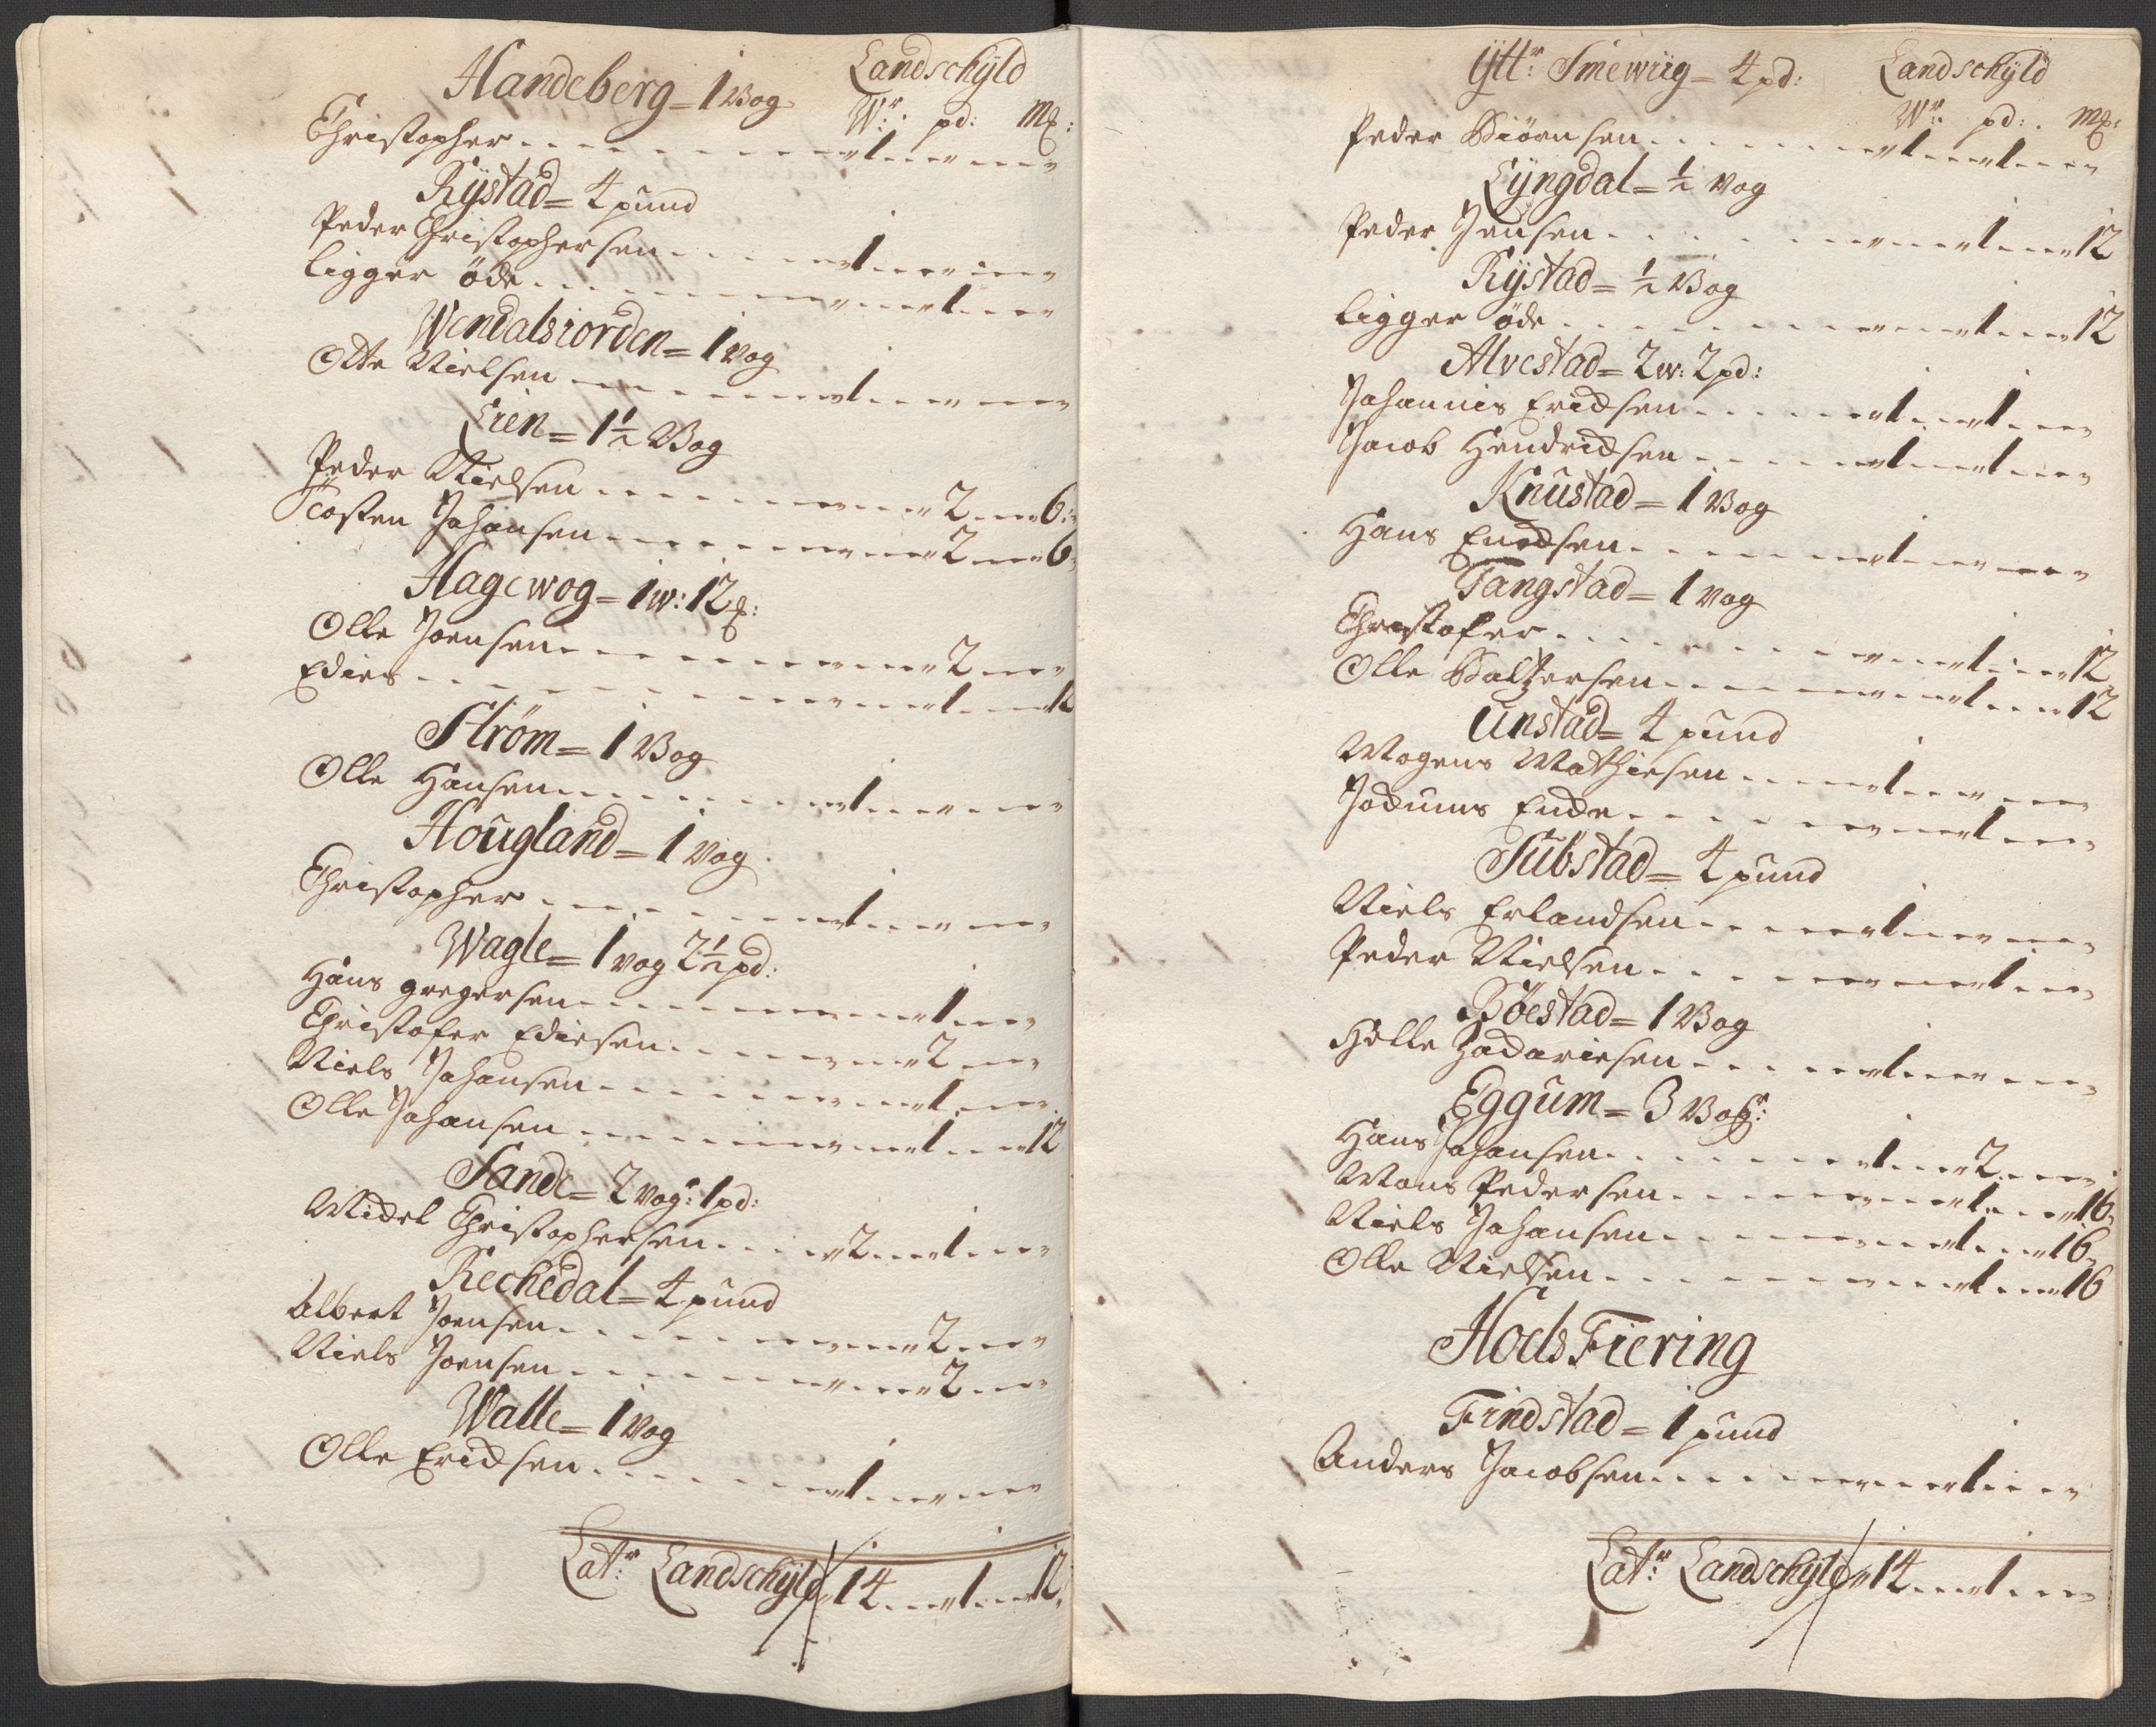 Handeberg = 1 Vog Landschÿld
Wr: pd: mk:
Christopher . . . . 1 . . . .
Rÿstad = 4 pund
Peder Christophersen . . . . 1 . . . .
ligger öde . . . . 1 . . .
Wendalsiorden = 1 Vog
Otte Nielsen . . . . 1 . . . .
Lien = 1 ½ Vog
Peder Nielsen . . . . 2 . . . 6
Tosten Johansen . . . . 2 . . . 6
Hagewog = 1 w: 12 mk:
Olle Joensen . . . . 2 . . .
Edies . . . . 1 . . . 12
Strøm = 1 Vog
Olle Hansen . . . . 1 . . . .
Hougland = 1 Vog
Christopher . . . . 1 . . . .
Wagle = 1 Vog 2 ½ pd:
Hans gregersen . . . . 1 . . .
Christofer Ediesen . . . . 2 . . .
Niels Johansen . . . . 1 . . .
Olle Johansen . . . . 1 . . . 12
Sande = 2 Vogr: 1 pd:
Mickel Christophersen . . . . 2 . . . 1 . . .
Rechedal = 4 pund
Albert Joensen . . . . 2 . . .
Niels Joensen . . . . 2 . . .
Walle = 1 Vog
Olle Ericksen . . . . 1 . . . .
Latr: Landschÿld 14 . . . 1 . . . 12
Ÿttr: Smewiig = 4 pd: Landschÿld
Wr: pd: mk:
Peder Biörnsen . . . . 1 . . . 1 . . .
Lÿngdal = ½ Vog
Peder Jensen . . . . 1 . . . 12
Rÿstad = ½ Vog
ligger öde . . . . 1 . . . 12
Alvestad = 2 w: 2 pd:
Johannis Ericksen . . . . 1 . . . 1 . . .
Jacob Hendricksen . . . . 1 . . . 1 . . .
Knustad = 1 Vog
Hans Enocksen . . . . 1 . . . .
Tangstad = 1 Vog
Christofer . . . . 1 . . . 12
Olle Baltzersen . . . . 1 . . . 12
Unstad = 4 pund
Mogens Mathiesen . . . . 1 . . . .
Jockums Encke . . . . 1 . . .
Substad = 4 pund
Niels Erlandsen . . . . 1 . . . .
Peder Nielsen . . . . 1 . . .
Böestad = 1 Vog
Holle Zacariesen . . . . 1 . . . .
Eggum = 3 Vogr:
Hans Johansen . . . . 1 . . . 2 . . .
Mons Pedersen . . . . 1 . . . 16
Niels Johansen . . . . 1 . . . 16
Olle Nielsen . . . . 1 . . . 16
Hols Fiering
Findstad = 1 pund
Anders Jacobsen . . . . 1 . . .
Latr: Landschÿld 14 . . . 1 . . .